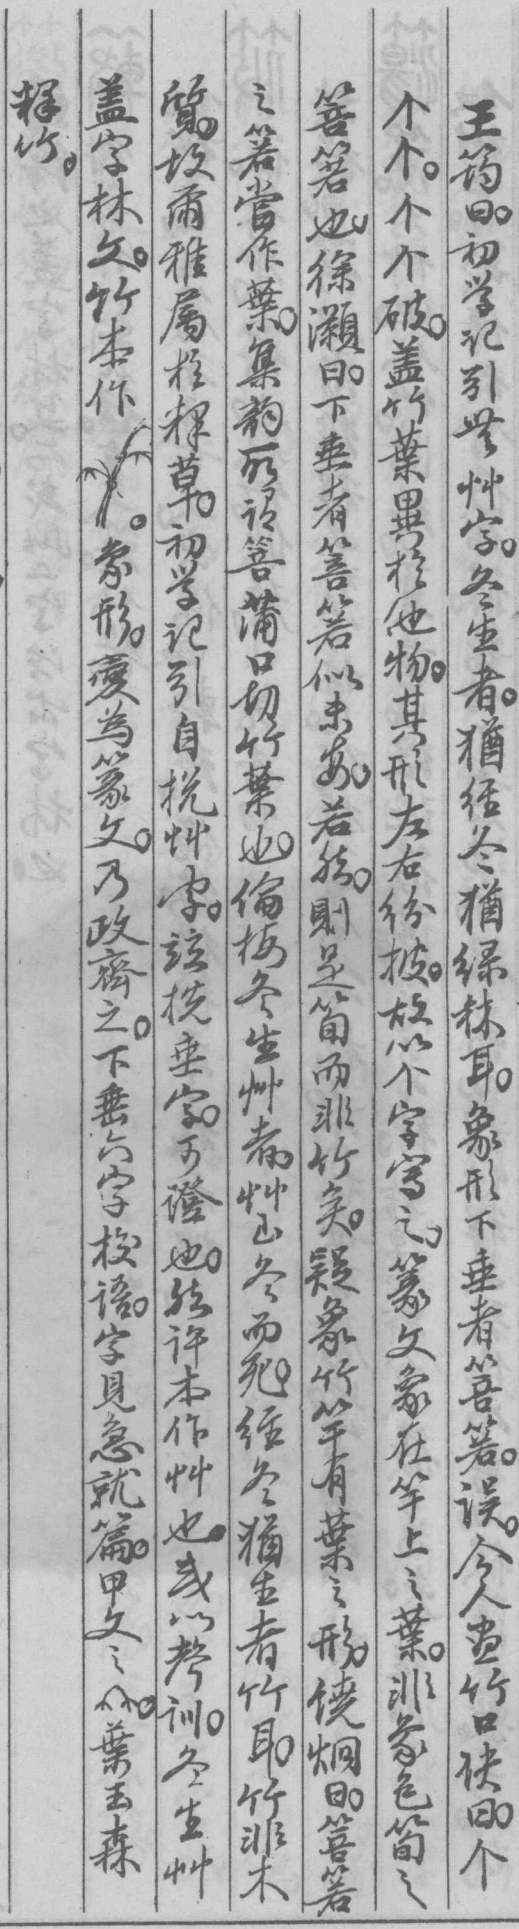 王筠曰。初学记引无艸字。冬生者。猶经冬猶绿林耳。象形下垂者箁箬。误。今人画竹口诀曰。个
个个。个个破。盖竹葉異於他物。其形左右纷披。故以个字写之。篆文象在竿上之葉。非象包筍之
箁箬也。徐灝曰。下垂者箁箬似未安。若然。則是筍而非竹矣。疑象竹竿有葉之形。饶炯曰。箁箬
之箬當作葉。集韵所谓箁蒲口切竹葉也。倫按冬生艸者。艸而冬而死。经冬猶生者竹耳。竹非木
質。故爾雅屬於释草。初学记引自挩艸字。該挩垂字。可證也。然许本作艸也。或以聲训。冬生艸
盖字林文。竹本作 。象形。變為篆文。乃改齊之。下垂六字校语。字見急就篇。甲文之 。葉玉森
释竹。